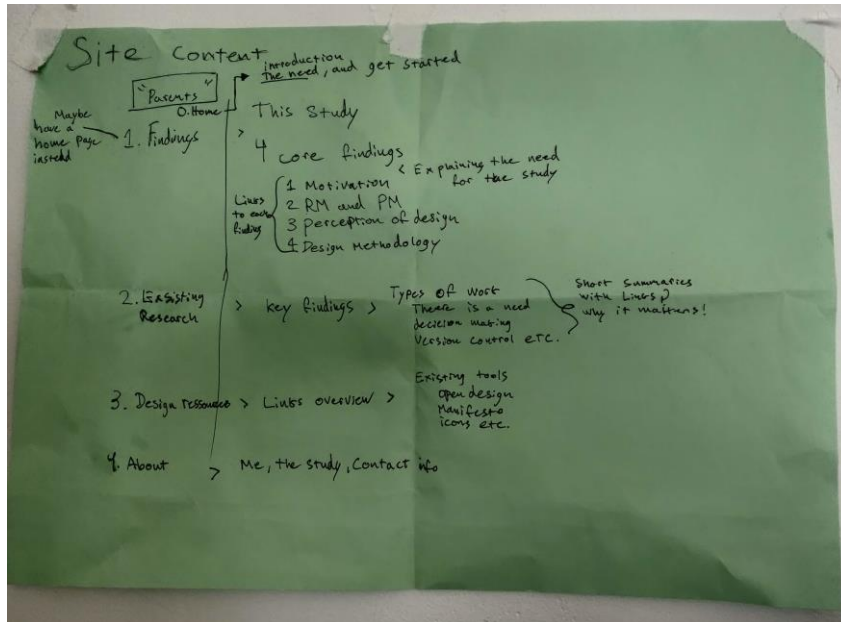 Site Content
introduction
the need, and get started
"Parents"
0. Home
Maybe
have a
home page
instead
1. Findings > This Study
4 core findings
< Explaining the need
for the study
Links
to each
finding
1 Motivation
2 RM and PM
3 perception of design
4 Design Methodology
2. Exsisting
Research
> key findings >
Types of work
There is a need
decision making
Version control etc.
Short summaries
with Links &
why it matters!
3. Design ressources > Links overview >
Existing tools
open design
Manifesto
icons etc.
4. About > Me, the study, Contact info